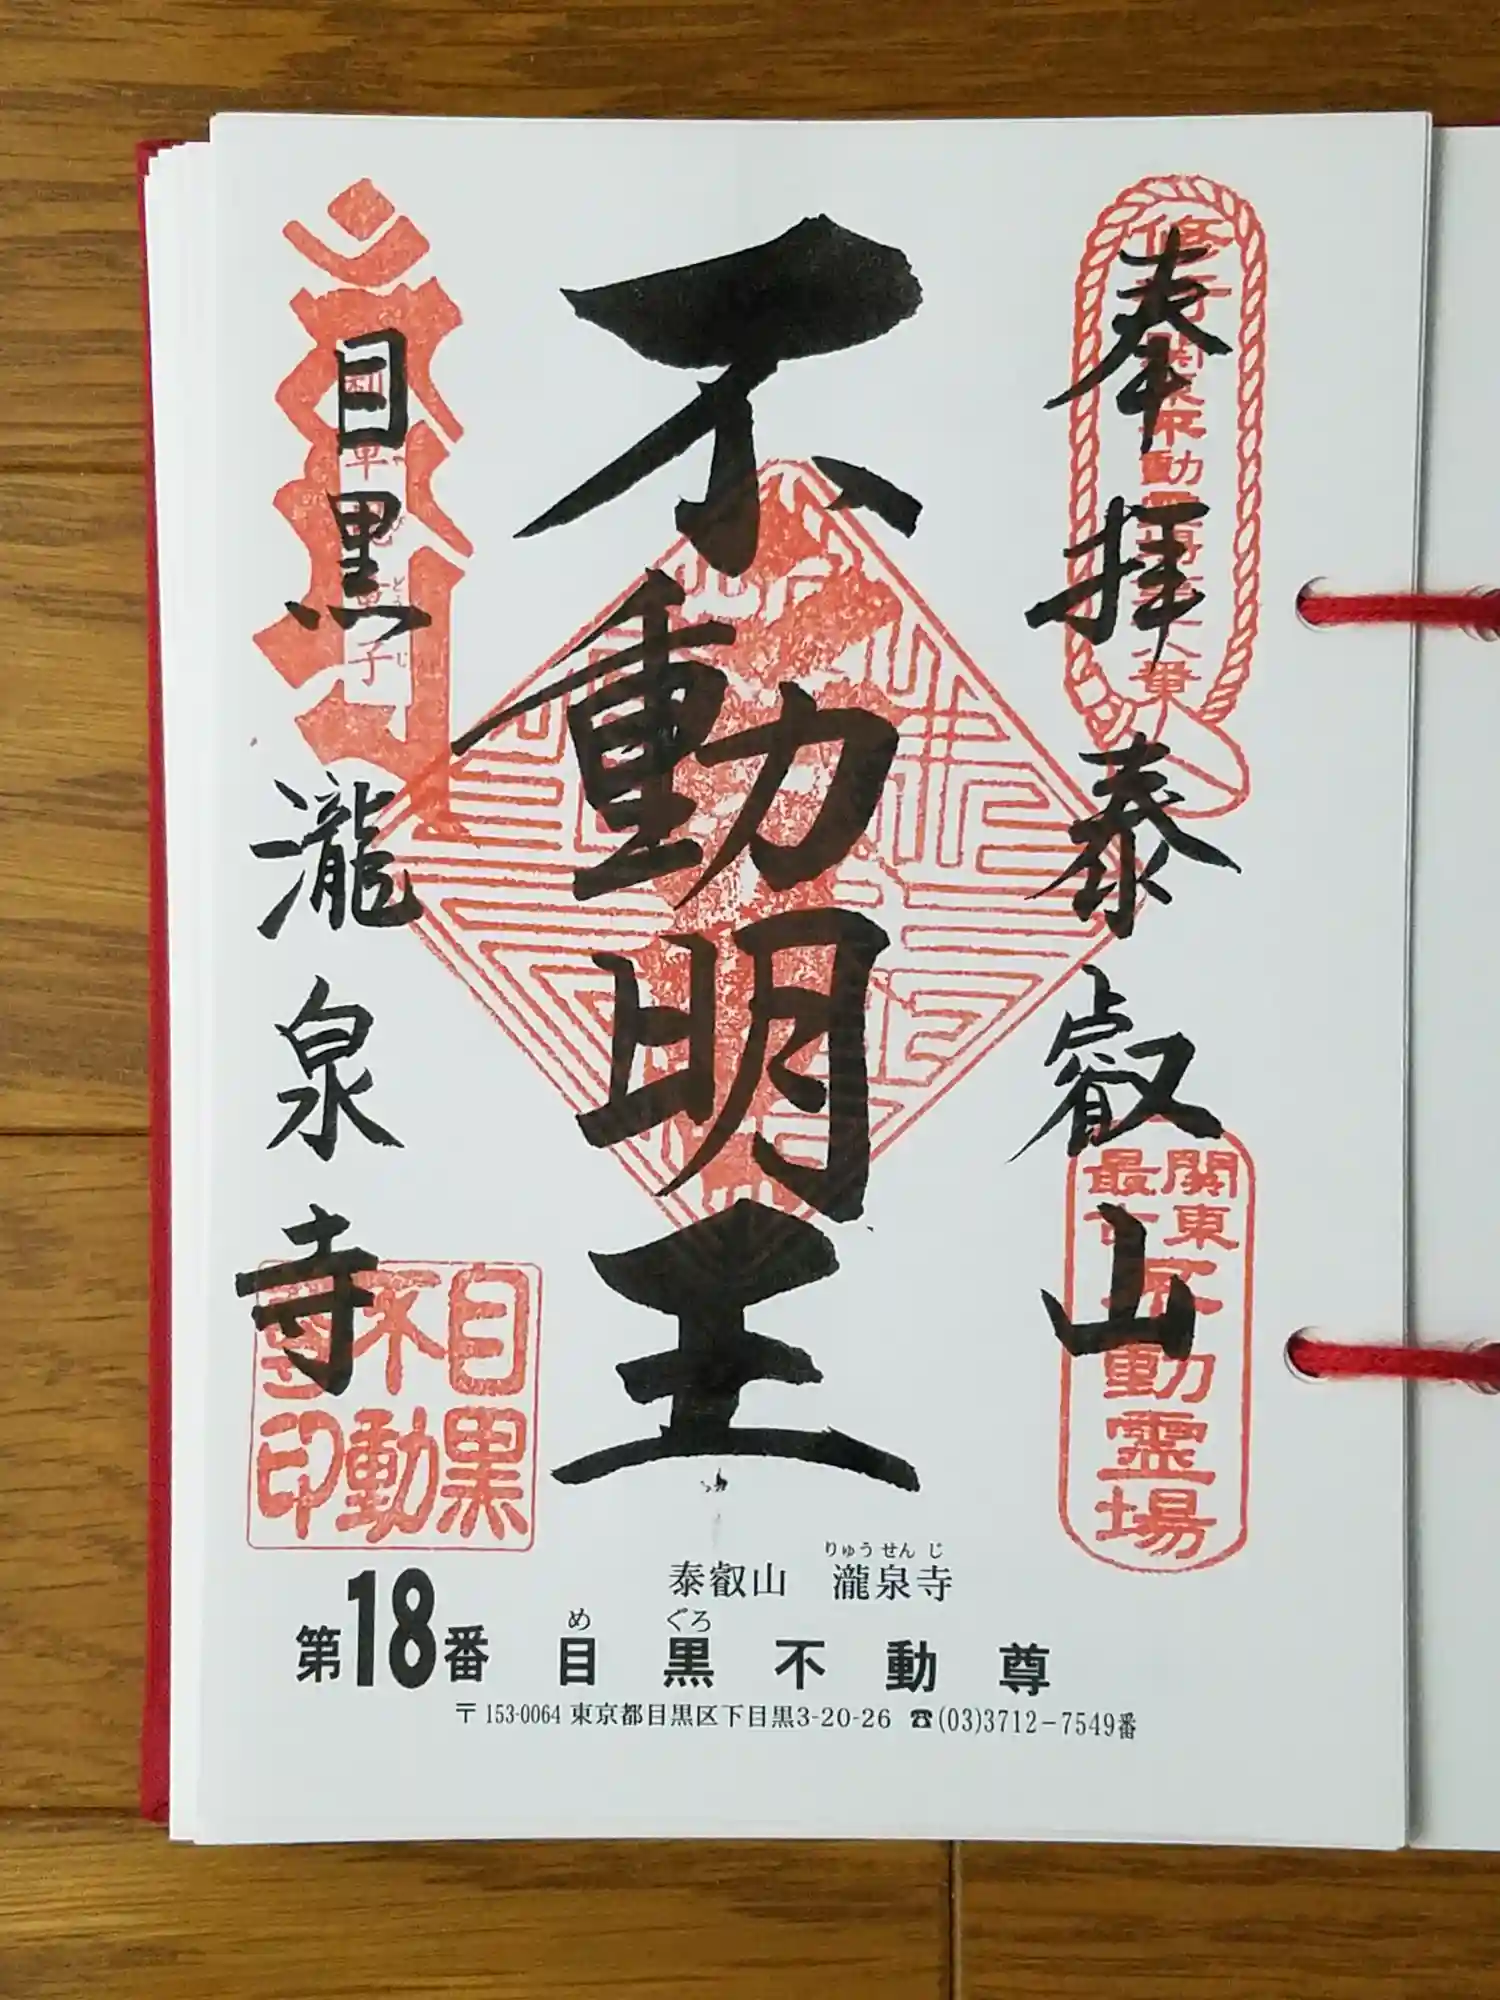 奉拝
泰叡山
不動明王
目黒
瀧泉寺
関東
最古
不動霊場
目黒
不動
尊印
りゅうせんじ
泰叡山　瀧泉寺
めぐろ
第18番 目黒不動尊
〒153-0064 東京都目黒区下目黒3-20-26 ☎(03)3712-7549番